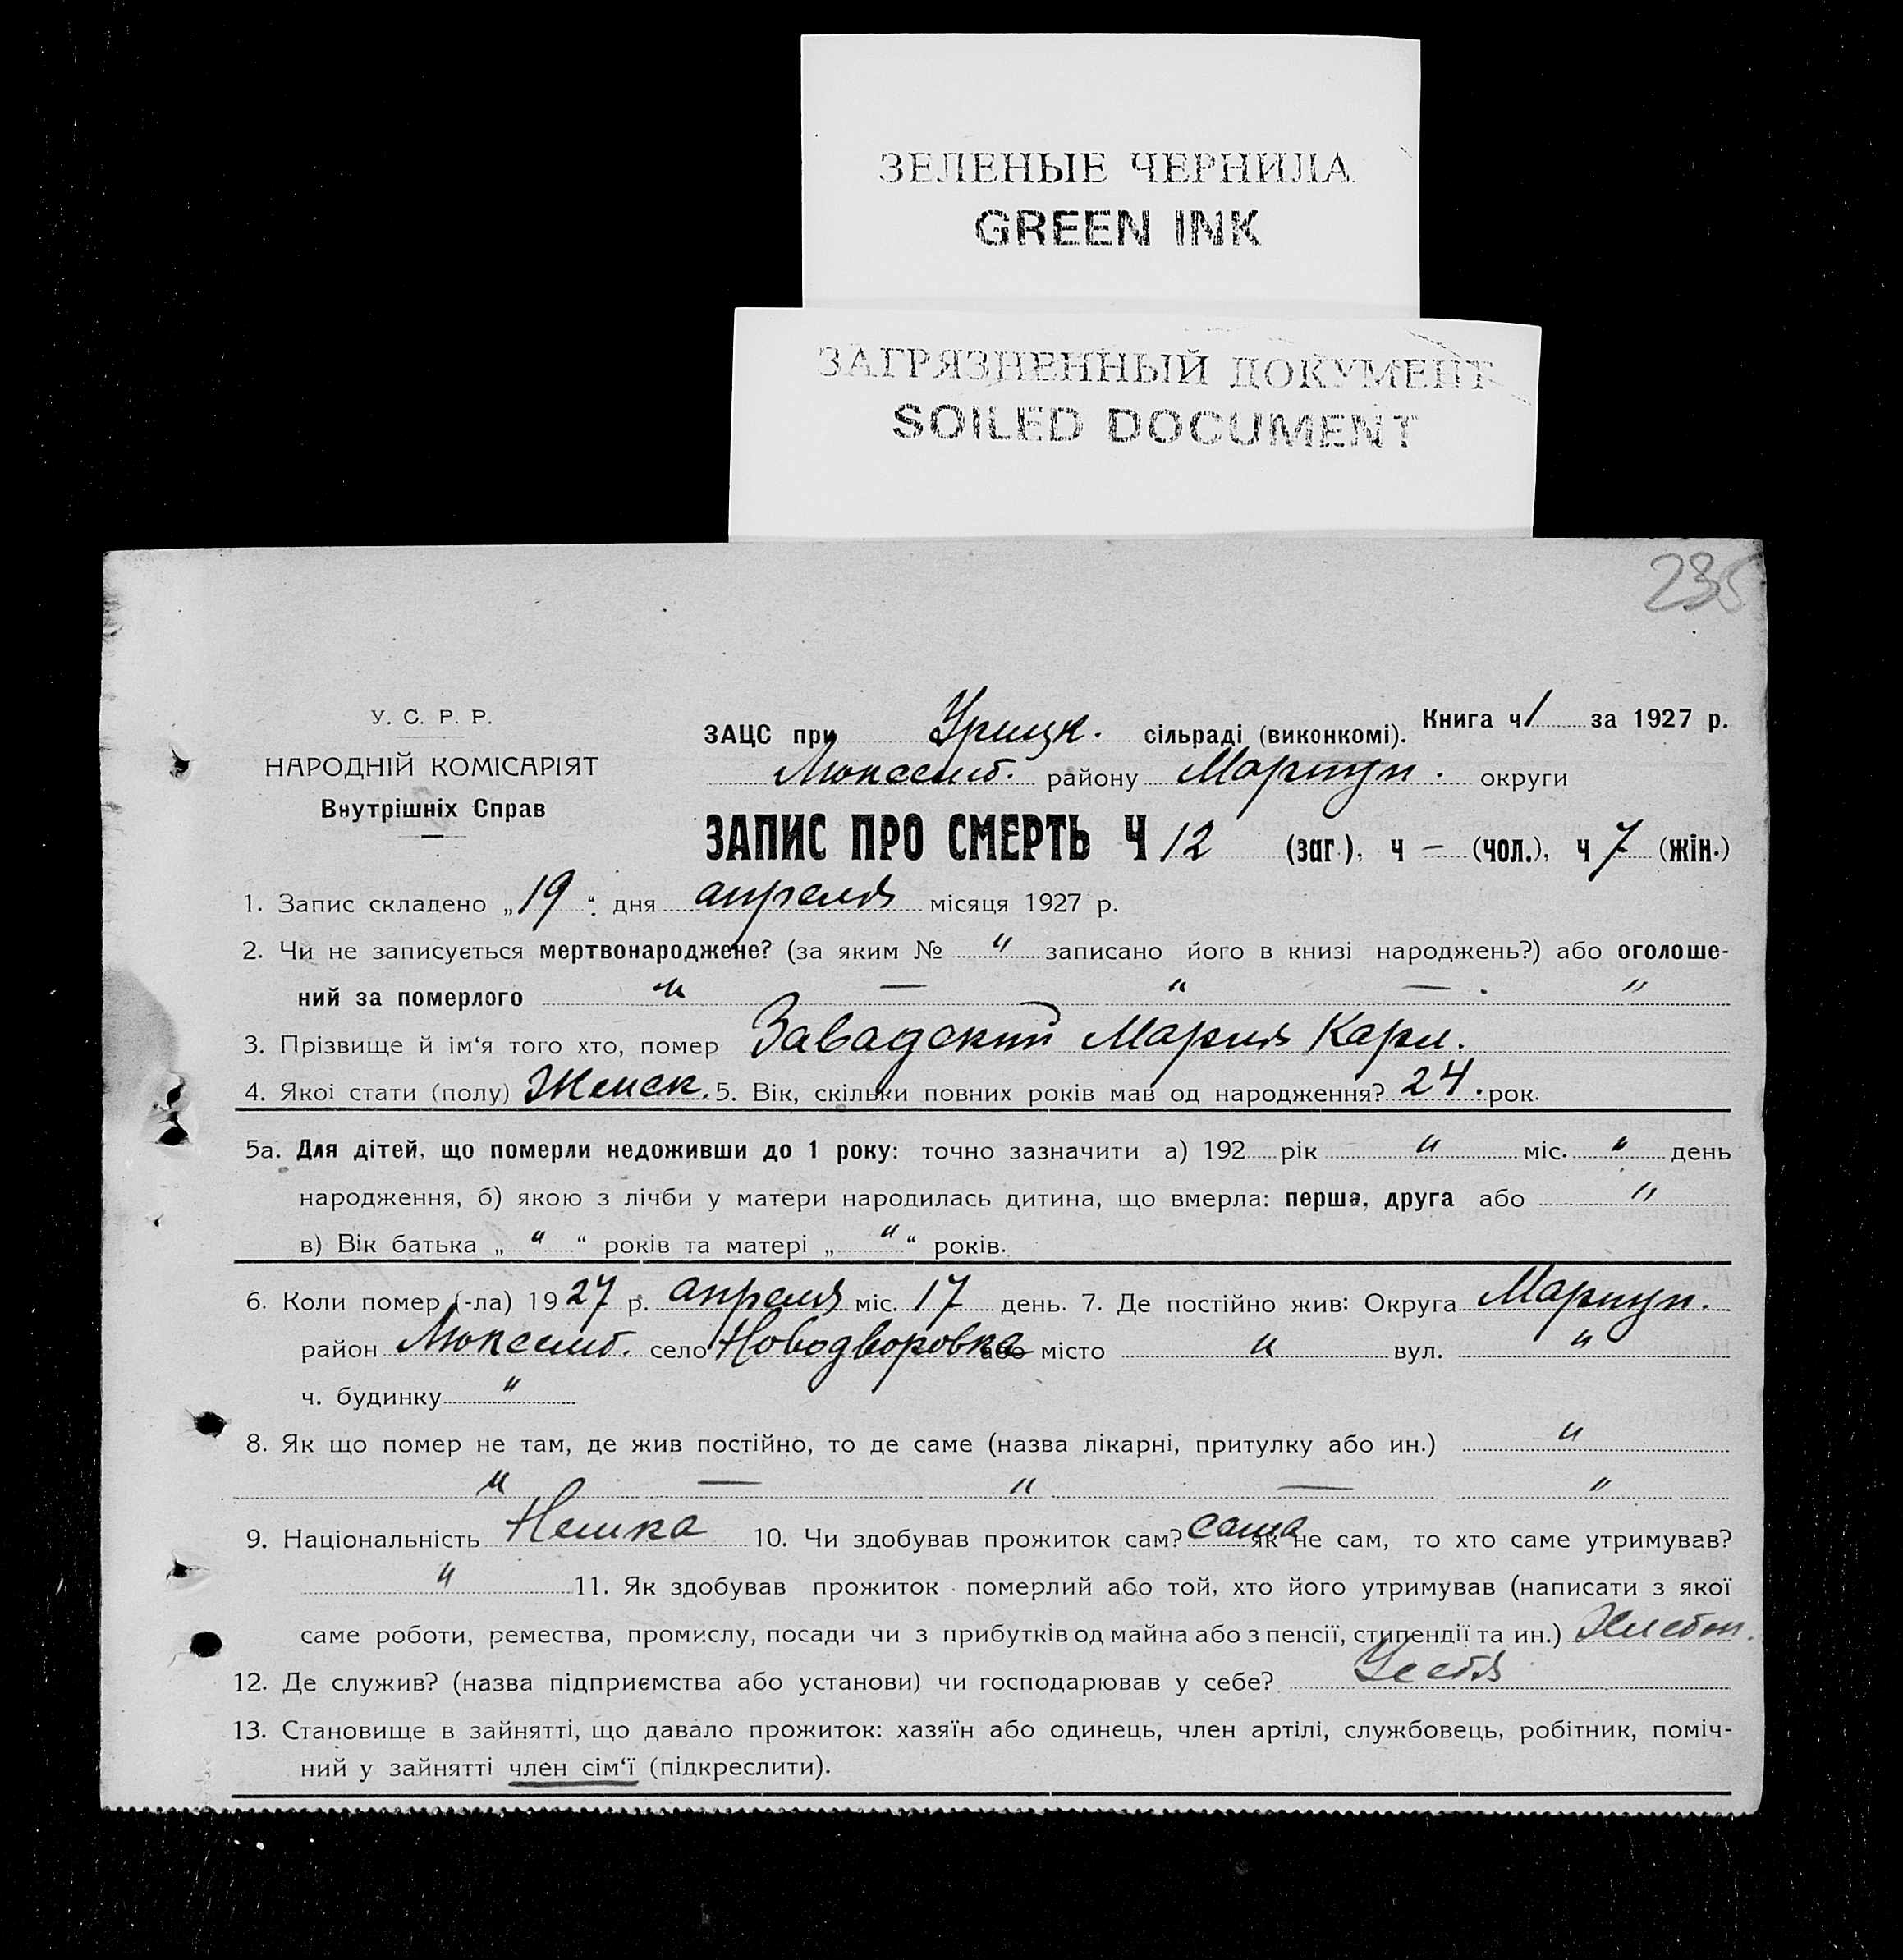 ЗЕЛЕНЫЕ ЧЕРНИЛА
GREEN INK
ЗАГРЯЗНЕННЫЙ ДОКУМЕНТ
SOILED DOCUMENT
235
У. С. Р. Р.
НАРОДНІЙ КОМІСАРІЯТ
Внутрішніх Справ
ЗАЦС при Урицк. сільраді (виконкомі). Книга ч 1 за 1927 р.
Люксемб. району Мариуп. округи
ЗАПИС ПРО СМЕРТЬ Ч 12 (заг.), ч — (чол.), ч 7 (жін.)
1. Запис складено „19“ дня апреля місяця 1927 р.
2. Чи не записується мертвонароджене? (за яким № " записано його в книзі народжень?) або оголоше-
ний за померлого " — " — "
3. Прізвище й ім‘я того хто, помер Завадский Мария Карл.
4. Якої стати (полу) Женск. 5. Вік, скільки повних років мав од народження? 24. рок.
5а. Для дітей, що померли недоживши до 1 року: точно зазначити а) 192 рік " міс. " день
народження, б) якою з лічби у матери народилась дитина, що вмерла: перша, друга або "
в) Вік батька „ " “ років та матері „ " “ років.
6. Коли помер (-ла) 1927 р. апреля міс. 17 день. 7. Де постійно жив: Округа Мариуп.
район Люксемб. село Новодворовка або місто " вул. "
ч. будинку "
8. Як що помер не там, де жив постійно, то де саме (назва лікарні, притулку або ин.) "
" — " — "
9. Національність Немка 10. Чи здобував прожиток сам? сама як не сам, то хто саме утримував?
" 11. Як здобував прожиток померлий або той, хто його утримував (написати з якої
саме роботи, ремества, промислу, посади чи з прибутків од майна або з пенсії, стипендії та ин.) Хлебоп.
12. Де служив? (назва підприємства або установи) чи господарював у себе? У себя
13. Становище в зайнятті, що давало прожиток: хазяїн або одинець, член артілі, службовець, робітник, поміч-
ний у зайнятті член сім‘ї (підкреслити).